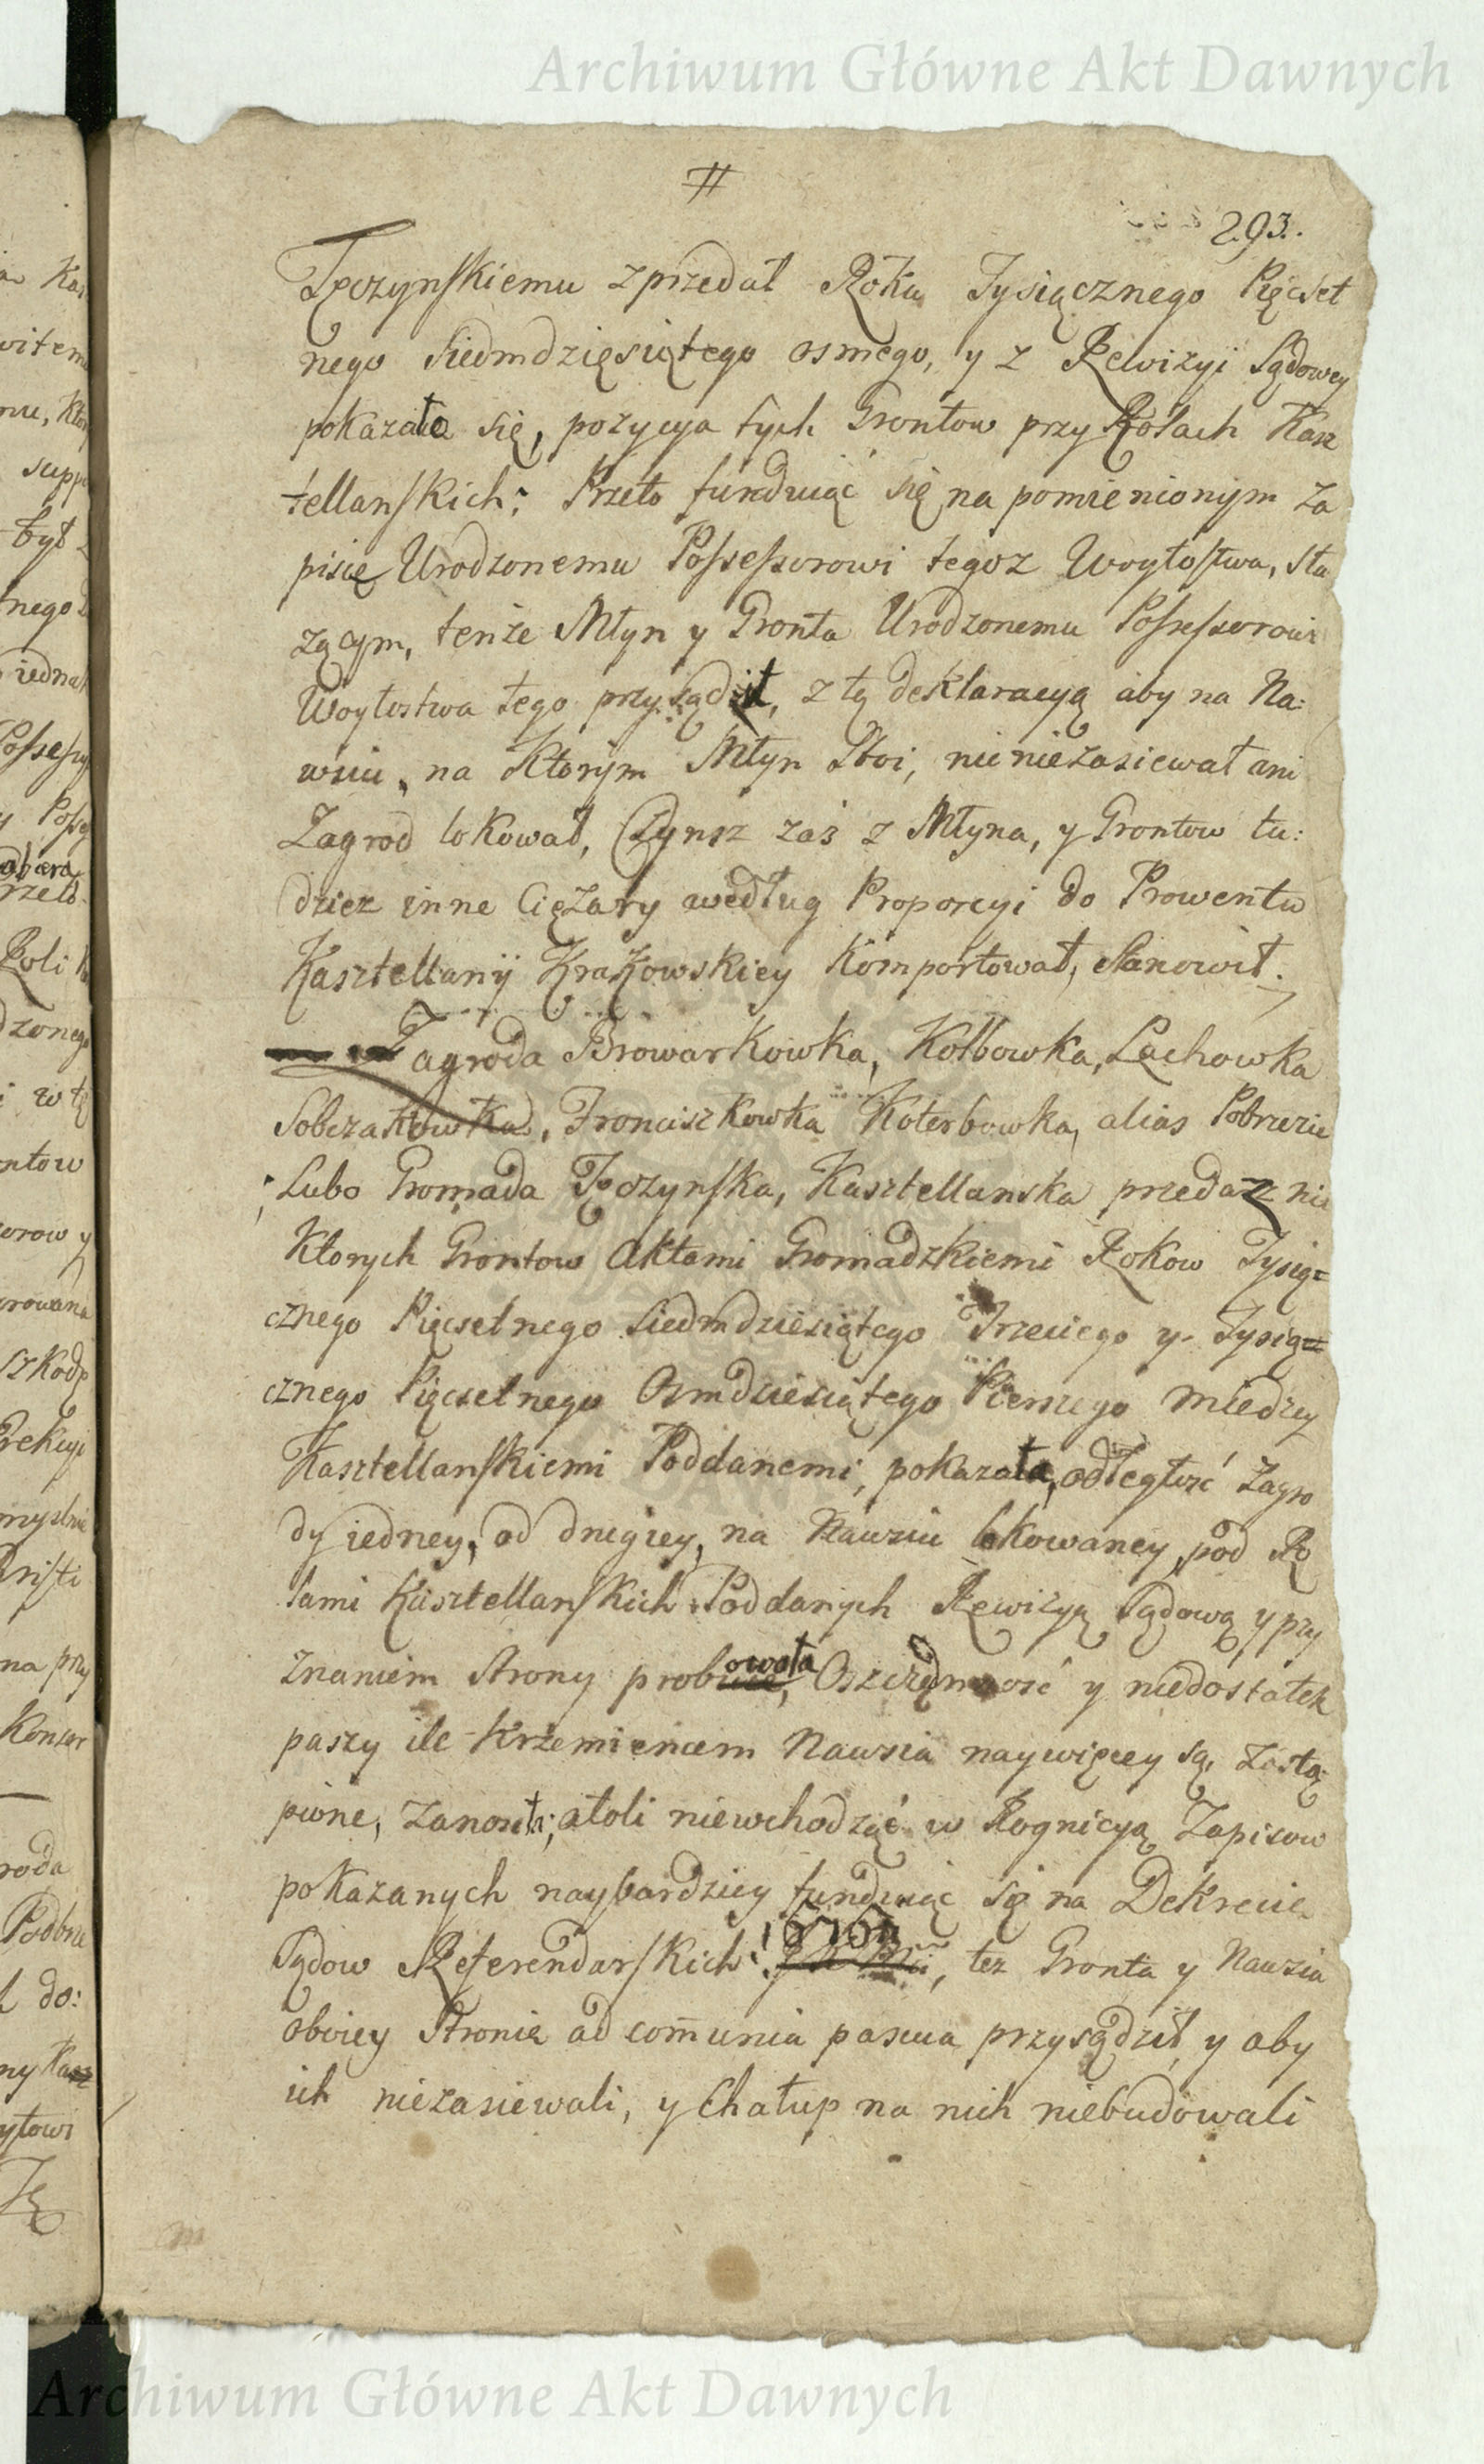 Archiwum Główne Akt Dawnych
#
293.
Tęczynskiemu zprzedał Roku Tysiącznego Pięcset
nego Siedmdzięsiątego osmego, y z Rewizyi Sądowey
pokazała się, pozycya tych Grontow przy Rolach Kasz
tellanskich; Przeto funduiąć się na pomienionym Za
pisię Urodzonemu Possessorowi tegoz Woytostwa, słu
zącym, tenże Młyn y Gronta Urodzonemu Possessorowi
Woytostwa tego przysądził, z tą deklaracyą aby na Na:
wsiu, na Ktorym Młyn Stoi, nic niezasiewał ani
Zagrod lokował, Czynsz zaś z Młyna, y Grontow tu:
dziez inne Ciężary według Proporcyi do Prowentu
Kasztellanij Krakowskiey Komportował, Stanowił.
Zagroda Browarkowka, Kolbowka, Lachowka
Sobczakowka, Fronciszkowka Koterbowka, alias Pobrzezie
Lubo Gromada Tęczynska, Kasztellanska przedaz nie
Ktorych Grontow Aktami Gromadzkiemi Rokow Tysią=
cznego Pięcsetnego Siedmdziesiątego Trzeciego y Tysią=
cznego Pięcsetnego Osmdziesiątego Pierszego miedzy
Kasztellanskiemi Poddanemi, pokazała, odległość Zagro
dy iedney, od drugiey, na Nawsiu lokowaney, pod Ro
lami Kasztellanskich Poddanych Rewizyą Sądową y przy
znaniem Strony probowała, y niedostatek
paszy ile Krzemieńcem Nawsia naywięcey są, zastą:
pione, zanosiła; atoli niewchodząć w Kognicyą Zapisow
pokazanych naybardziey funduiąc się na Dekrecie
Sądow Referendarskich, tez Gronta y Nawsia
oboiey Stronie ad com̄unia pascua przysądził, y aby
ich niezasiewali, y Chałup na nich niebudowali
Archiwum Główne Akt Dawnych